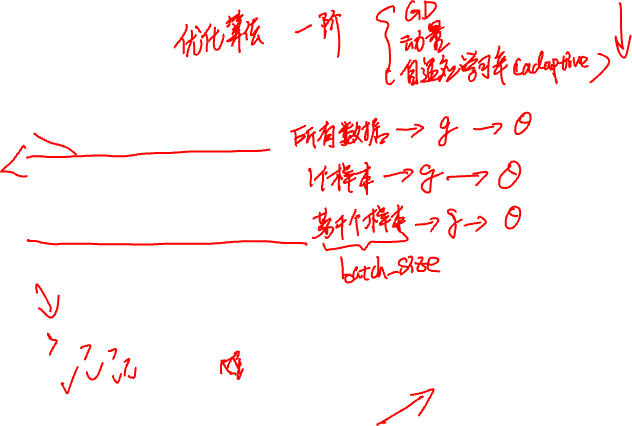 优化算法 一阶 GD
动量
自适应学习率 (adaptive)
所有数据 → g → θ
1个样本 → g → θ
若干个样本 → g → θ
batch_size